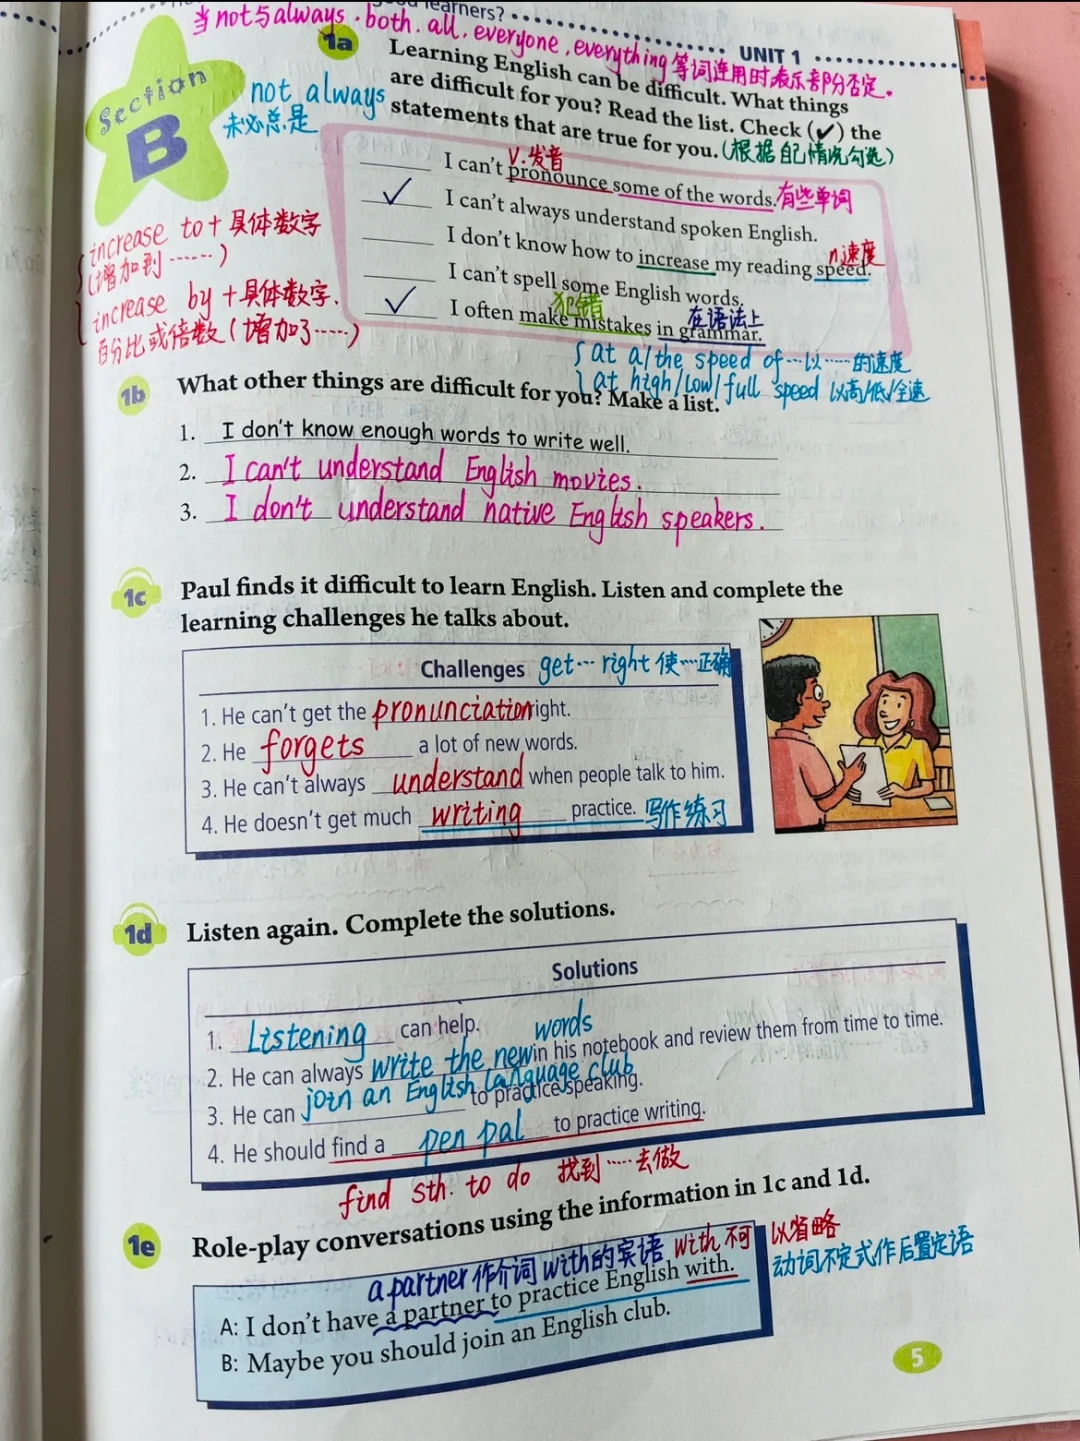 learners?
当not与always.both.all.everyone.everything等词连用时表示部分否定.
UNIT 1
Section
B
1a
Learning English can be difficult. What things
are difficult for you? Read the list. Check (✓) the
statements that are true for you.(根据自己情况勾选)
not always
未必总是
v.发音
I can't pronounce some of the words.有些单词
✓ I can't always understand spoken English.
n.速度
I don't know how to increase my reading speed.
I can't spell some English words.
犯错
在语法上
✓ I often make mistakes in grammar.
increase to+具体数字
(增加到……)
increase by+具体数字.
百分比或倍数(增加了……)
at a/the speed of…以……的速度
at high/low/full speed 以高/低/全速
1b What other things are difficult for you? Make a list.
1. I don't know enough words to write well.
2. I can't understand English movies.
3. I don't understand native English speakers.
1c Paul finds it difficult to learn English. Listen and complete the
learning challenges he talks about.
Challenges get…right 使…正确
1. He can't get the pronunciation right.
2. He forgets a lot of new words.
3. He can't always understand when people talk to him.
4. He doesn't get much writing practice. 写作练习
1d Listen again. Complete the solutions.
Solutions
1. Listening can help.
words
2. He can always write the new in his notebook and review them from time to time.
3. He can join an English language club to practice speaking.
4. He should find a pen pal to practice writing.
find sth. to do 找到……去做
1e Role-play conversations using the information in 1c and 1d.
a partner作介词with的宾语 with不可以省略
动词不定式作后置定语
A: I don't have a partner to practice English with.
B: Maybe you should join an English club.
5